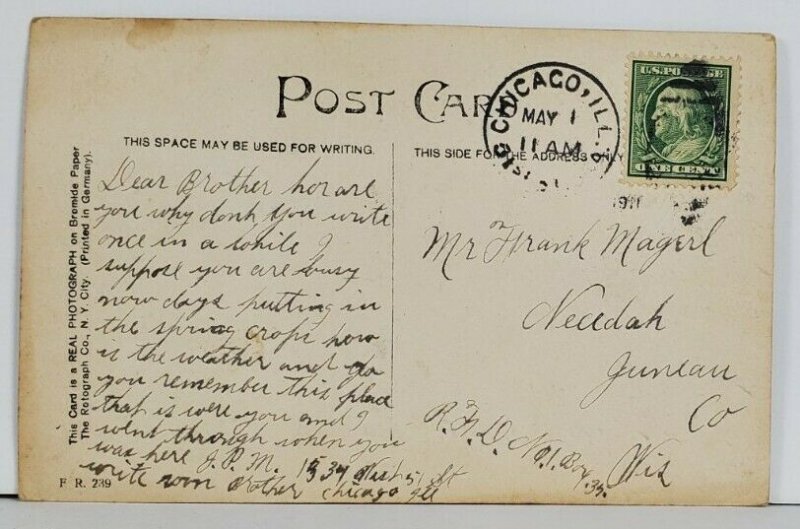 POST CARD
THIS SPACE MAY BE USED FOR WRITING.
THIS SIDE FOR THE ADDRESS ONLY
This Card is a REAL PHOTOGRAPH on Bromide Paper
The Rotograph Co., N. Y. City. (Printed in Germany).
F R. 239
CHICAGO, ILL.
MAY 1
11 AM
1911
U.S. POSTAGE
ONE CENT
Dear Brother how are
you why dont you write
once in a while I
suppose you are busy
now days putting in
the spring crops how
is the weather and do
you remember this place
that is were you and I
went through when you
was here J. P. M.
write soon Brother Chicago Ill
Mr Frank Magerl
Necedah
Juneau
Co
R. F. D. No 1. Box 35.
Wis